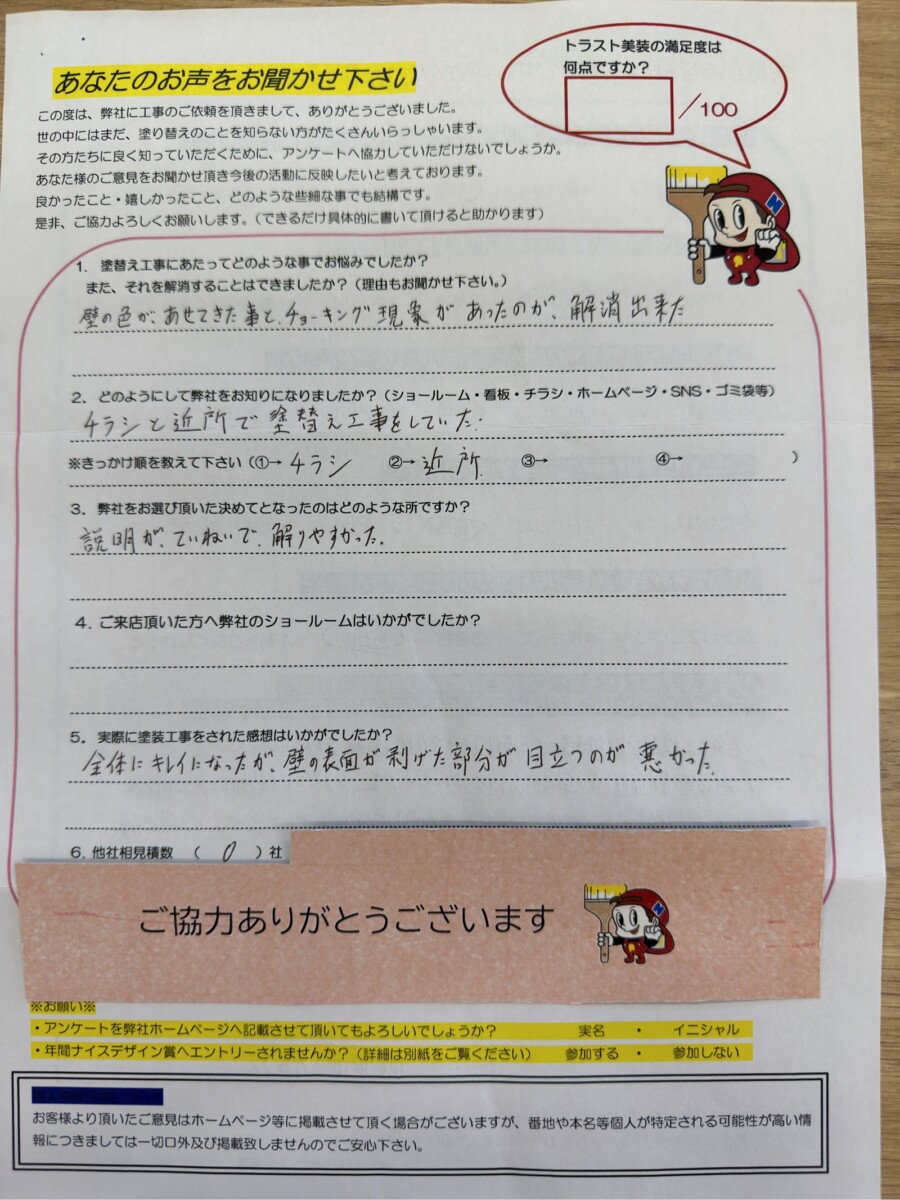 あなたのお声をお聞かせ下さい
トラスト美装の満足度は
何点ですか？
/100
この度は、弊社に工事のご依頼を頂きまして、ありがとうございました。
世の中にはまだ、塗り替えのことを知らない方がたくさんいらっしゃいます。
その方たちに良く知っていただくために、アンケートへ協力していただけないでしょうか。
あなた様のご意見をお聞かせ頂き今後の活動に反映したいと考えております。
良かったこと・嬉しかったこと、どのような些細な事でも結構です。
是非、ご協力よろしくお願いします。（できるだけ具体的に書いて頂けると助かります）
N
1. 塗替え工事にあたってどのような事でお悩みでしたか？
また、それを解消することはできましたか？（理由もお聞かせ下さい。）
壁の色が、あせてきた事と、チョーキング現象があったのが、解消出来た
2. どのようにして弊社をお知りになりましたか？（ショールーム・看板・チラシ・ホームページ・SNS・ゴミ袋等）
チラシと近所で塗替え工事をしていた.
※きっかけ順を教えて下さい（①→ チラシ ②→ 近所 ③→ ④→ ）
3. 弊社をお選び頂いた決めてとなったのはどのような所ですか？
説明が、ていねいで、解りやすかった.
4. ご来店頂いた方へ弊社のショールームはいかがでしたか？
5. 実際に塗装工事をされた感想はいかがでしたか？
全体にキレイになったが、壁の表面が剥げた部分が目立つのが悪かった.
6. 他社相見積数 （ 0 ）社
ご協力ありがとうございます
N
※お願い※
・アンケートを弊社ホームページへ記載させて頂いてもよろしいでしょうか？ 実名 ・ イニシャル
・年間ナイスデザイン賞へエントリーされませんか？（詳細は別紙をご覧ください） 参加する ・ 参加しない
お客様より頂いたご意見はホームページ等に掲載させて頂く場合がございますが、番地や本名等個人が特定される可能性が高い情
報につきましては一切口外及び掲載致しませんのでご安心下さい。